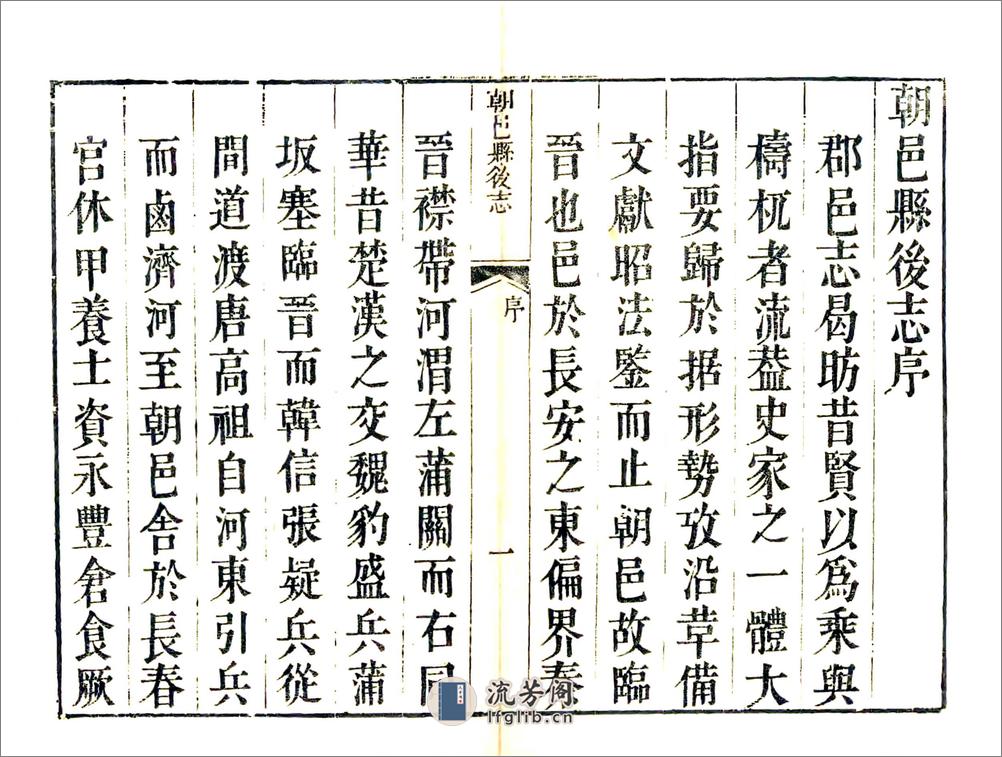 朝邑縣後志序
郡邑志曷昉昔賢以爲乘與
檮杌者流葢史家之一體大
指要歸於据形勢攷沿革備
文獻昭法鑒而止朝邑故臨
晉也邑於長安之東偏界秦
朝邑縣後志
序
一
晉襟帶河渭左蒲關而右同
華昔楚漢之交魏豹盛兵蒲
坂塞臨晉而韓信張疑兵從
間道渡唐高祖自河東引兵
而鹵濟河至朝邑舍於長春
宮休甲養士資永豐倉食厥
流芳阁
lfglib.cn